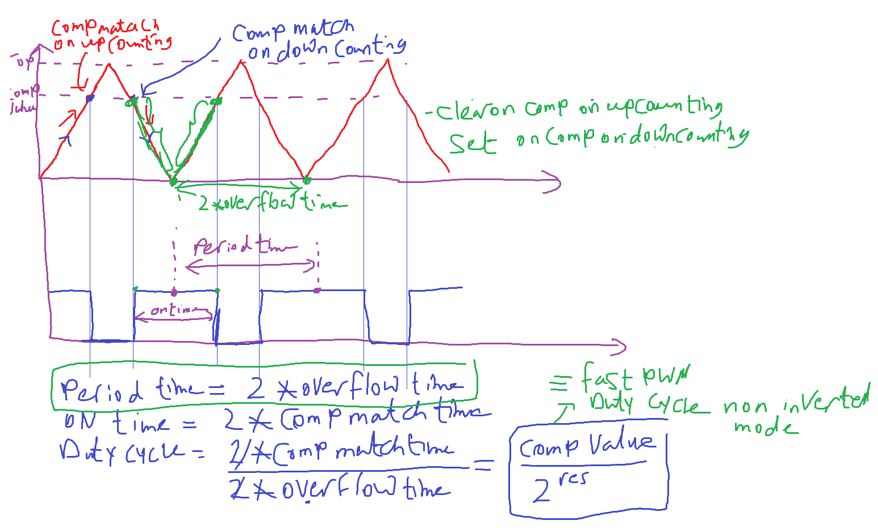 Comp match
on up counting
Comp match
on down counting
Top
omp
- clear on comp on upcounting
Set on comp on down counting
2*overflow time
Period time
on time
Period time = 2 * overflow time
ON time = 2 * Comp match time
Duty cycle = 2 * Comp match time
2 * overflow time
= Comp Value
2^res
≡ fast PWM
Duty cycle non inverted
mode